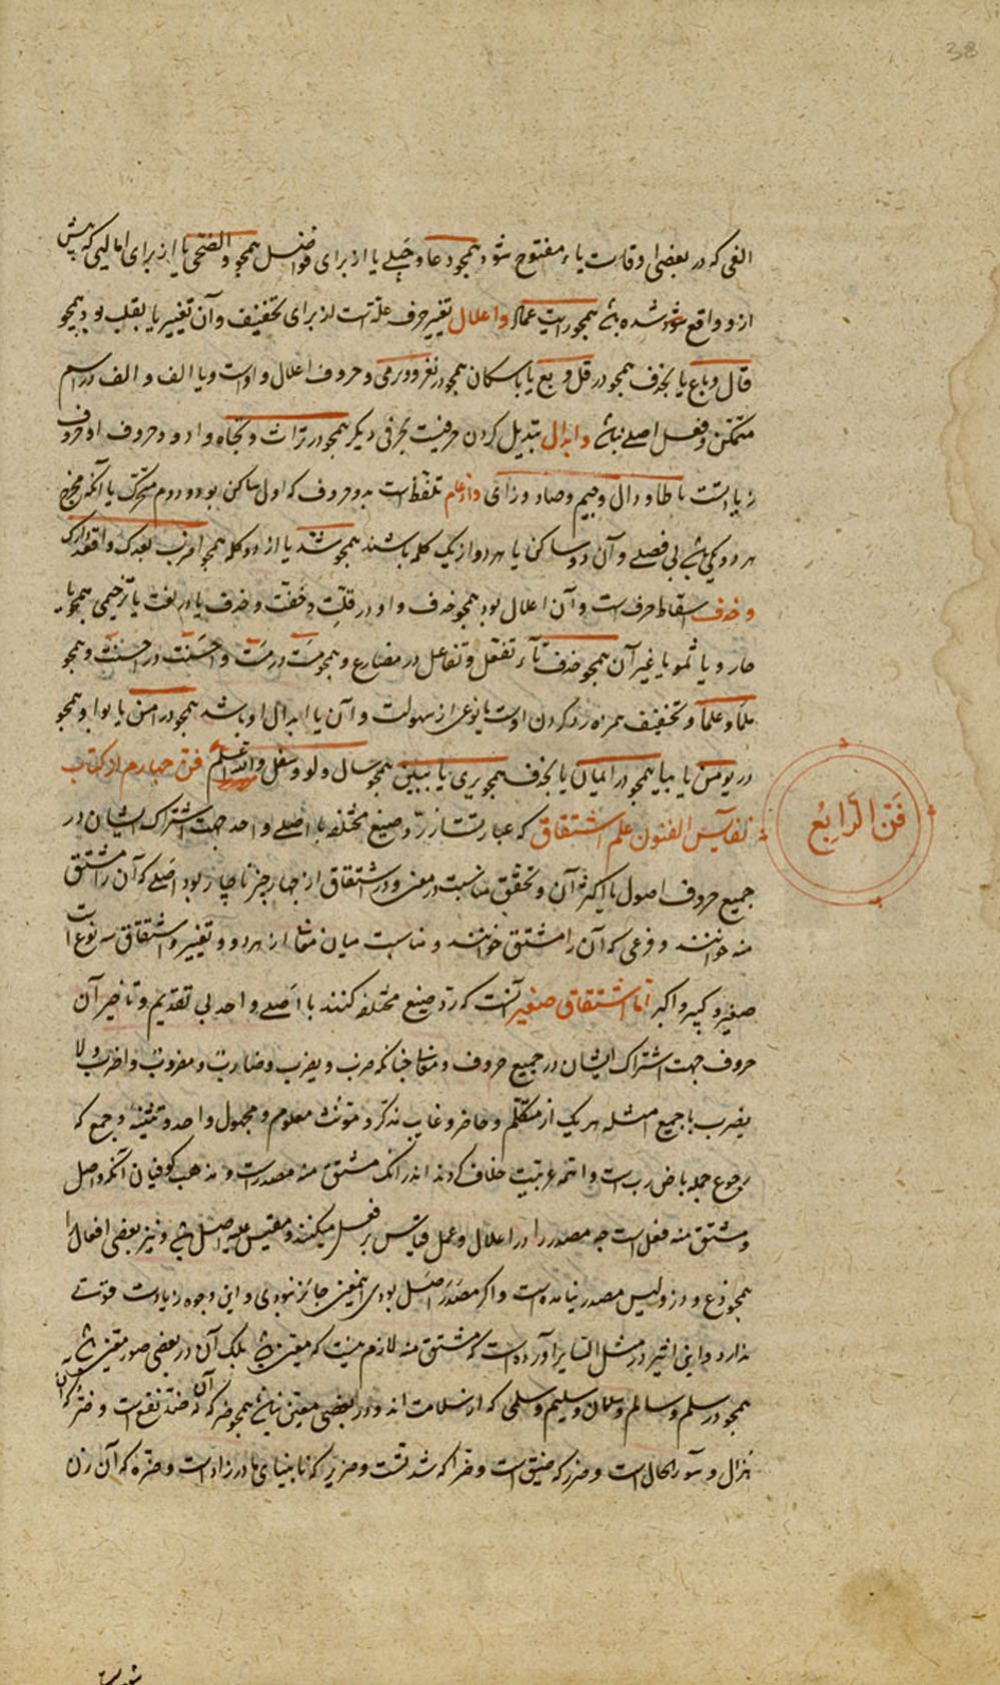 38
الفی که در بعضی اوقات یاء مفتوح شود همجو دعا و حبلی یا از برای فواصل همجو والضحی یا از برای اماله که پیش
ازو واقع شده باشد همجو رایت عمادا واعلال تغییر حرف علتست از برای تخفیف و آن تغییر یا بقلب بود همجو
قال و باع یا بحذف همجو در قل و بع یا باسکان همجو در یغزو و یرمی و حروف اعلال واوست و یا الف و الف در اسم
متمکن و فعل اصلی نباشد وابدال تبدیل کردن حرفیست بحرفی دیکر همجو در تراث و تجاه و ادو و حروف او حروف
زیادتست با طا و دال و جیم و صاد و زای وادغام تلفظ است بدو حروف که اول ساکن بود و دوم متحرک با آنکه مخرج
هر دو یکی باشد بی فصلی و آن دو ساکن یا هر دو از یک کلمه باشند همجو شد یا از دو کلمه همجو اضرب بعدک
وحذف اسقاط حرفست و آن اعلال بود همجو حذف واو در قلت و خفت و حذف یا در بعت یا ترخیمی همجو یا
حار و یا ثمو یا غیر آن همجو حذف تاء تفعل و تفاعل در مضارع و همجو مست در مسست و احست در احسست و همجو
علما و تخفیف همزه رد کردن اوست بنوعی از سهولت و آن یا ابدال او باشد همجو در آمن یا بواو همجو
در یومن یا بیا همجو در ایمان یا بحذف همجو یری یا بین بین همجو سال و لوم و سئل والله اعلم فن جهارم از کتاب
نفایس الفنون علم اشتقاق که عبارتست از رد صیغ مختلفه با اصلی واحد جهت اشتراک ایشان در
فن الرابع
جمیع حروف اصول یا اکثر آن و تحقق مناسبت در معنی و در اشتقاق از جهار جیز ناجار بود اصلی که آن را مشتق
منه خوانند و فرعی که آن را مشتق خوانند و مناسبت میان هر دو و تغییر و اشتقاق سه نوع است
صغیر و کبیر و اکبر اما اشتقاق صغیر آنست که رد صیغ مختلفه کنند با اصلی واحد بی تقدیم و تاخیر آن
حروف جهت اشتراک ایشان در جمیع حروف و معنا جنانکه ضرب و یضرب و ضارب و مضروب و اضرب و لا
یضرب با جمیع امثله هر یک از متکلم و حاضر و غایب مذکر و مونث معلوم و مجهول و احد و تثنیه و جمع که
رجوع جمله با ض ر ب است و ائمه عربیت خلاف کرده اند در انک مشتق منه مصدرست و مذهب کوفیان آنکه اصل
و مشتق منه فعل است جه مصدر را در اعلال و عمل قیاس بر فعل میکنند و مقیس علیه اصل باشد و نیز بعضی افعال را
همجو دع و ذر و لیس مصدر نیامده است و اکر مصدر اصل بودی اینمعنی جائز نبودی و این وجوه زیادت قوتی
ندارد و ابن اثیر در مثل السایر آورده است که مشتق منه لازم نیست که معین باشد بلک آن در بعضی صور متعین باشد
همجو در سلم و سالم و سلمان و سلیم و سلمی که از سلامت اند و در بعضی معین نباشد همجو ضر که آن ضد نفع است و ضر که آن
هزال و سوء الحال است و ضرر که ضیق است و ضرا که شدتست و ضریر که نابینای مادرزاد است و ضره که آن زن